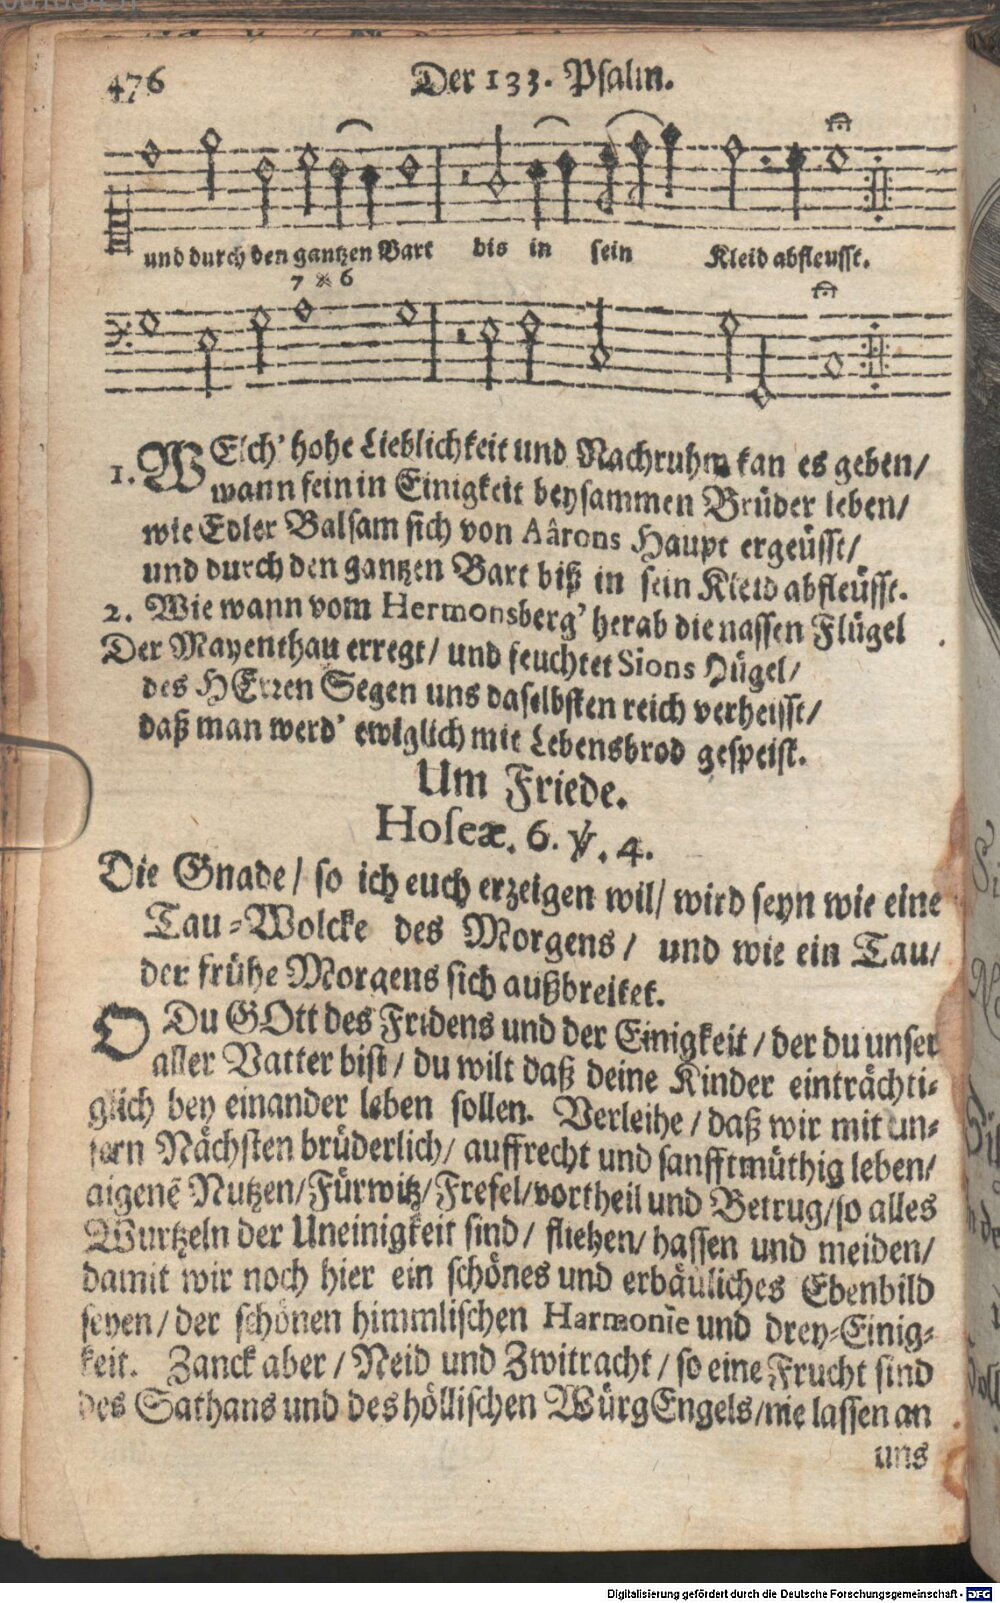 476
Der 133. Psalm.
und durch den gantzen Bart bis in sein Kleid abfleusst.
7 6
1. WElch' hohe Lieblichkeit und Nachruhm kan es geben/
wann fein in Einigkeit beysammen Brüder leben/
wie Edler Balsam sich von Aârons Haupt ergeüsst/
und durch den gantzen Bart biß in sein Kleid abfleüsst.
2. Wie wann vom Hermonsberg' herab die nassen Flügel
Der Mayenthau erregt/ und feuchtet Sions Hügel/
des HErren Segen uns daselbsten reich verheisst/
daß man werd' ewiglich mit Lebensbrod gespeist.
Um Friede.
Hoseæ. 6. ℣. 4.
Die Gnade/ so ich euch erzeigen wil/ wird seyn wie eine
Tau-Wolcke des Morgens/ und wie ein Tau/
der frühe Morgens sich außbreitet.
O Du GOtt des Fridens und der Einigkeit/ der du unser
aller Vatter bist/ du wilt daß deine Kinder einträchti-
glich bey einander leben sollen. Verleihe/ daß wir mit un-
sern Nächsten brüderlich/ auffrecht und sanfftmüthig leben/
aigenẽ Nutzen/Fürwitz/Frefel/vortheil und Betrug/so alles
Wurtzeln der Uneinigkeit sind/ fliehen/ hassen und meiden/
damit wir noch hier ein schönes und erbäuliches Ebenbild
seyen/ der schönen himmlischen Harmonie und drey-Einig-
keit. Zanck aber/ Neid und Zwitracht/ so eine Frucht sind
des Sathans und des höllischen WürgEngels/nie lassen an
uns
Digitalisierung gefördert durch die Deutsche Forschungsgemeinschaft - DFG